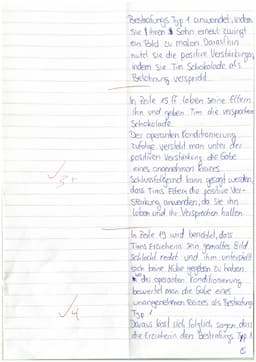 Bestrafungs Typ 1 anwendet, indem
sie ihren Sohn erneut zwingt
ein Bild zu malen. Daraufhin
nutzt sie die positive Verstärkung,
indem sie Tim Schokolade als
Belohnung verspricht.
In Zeile 15 ff loben seine Eltern
ihn und geben Tim die versprochene
Schokolade.
Der operanten Konditionierung
zufolge versteht man unter der
positiven Verstärkung die Gabe
eines angenehmen Reizes.
Schlussfolgernd kann gesagt werden,
dass Tims Eltern die positive Ver-
stärkung anwenden, da sie ihn
loben und ihr Versprechen halten.
In Zeile 19 wird berichtet, dass
Tims Erzieherin sein gemaltes Bild
schlecht redet und ihm unterstellt
sich keine Mühe gegeben zu haben.
der operanten Konditionierung
bewertet man die Gabe eines
unangenehmen Reizes als Bestrafung
Typ 1.
Daraus lässt sich folglich sagen, dass
die Erzieherin den Bestrafungs Typ 1